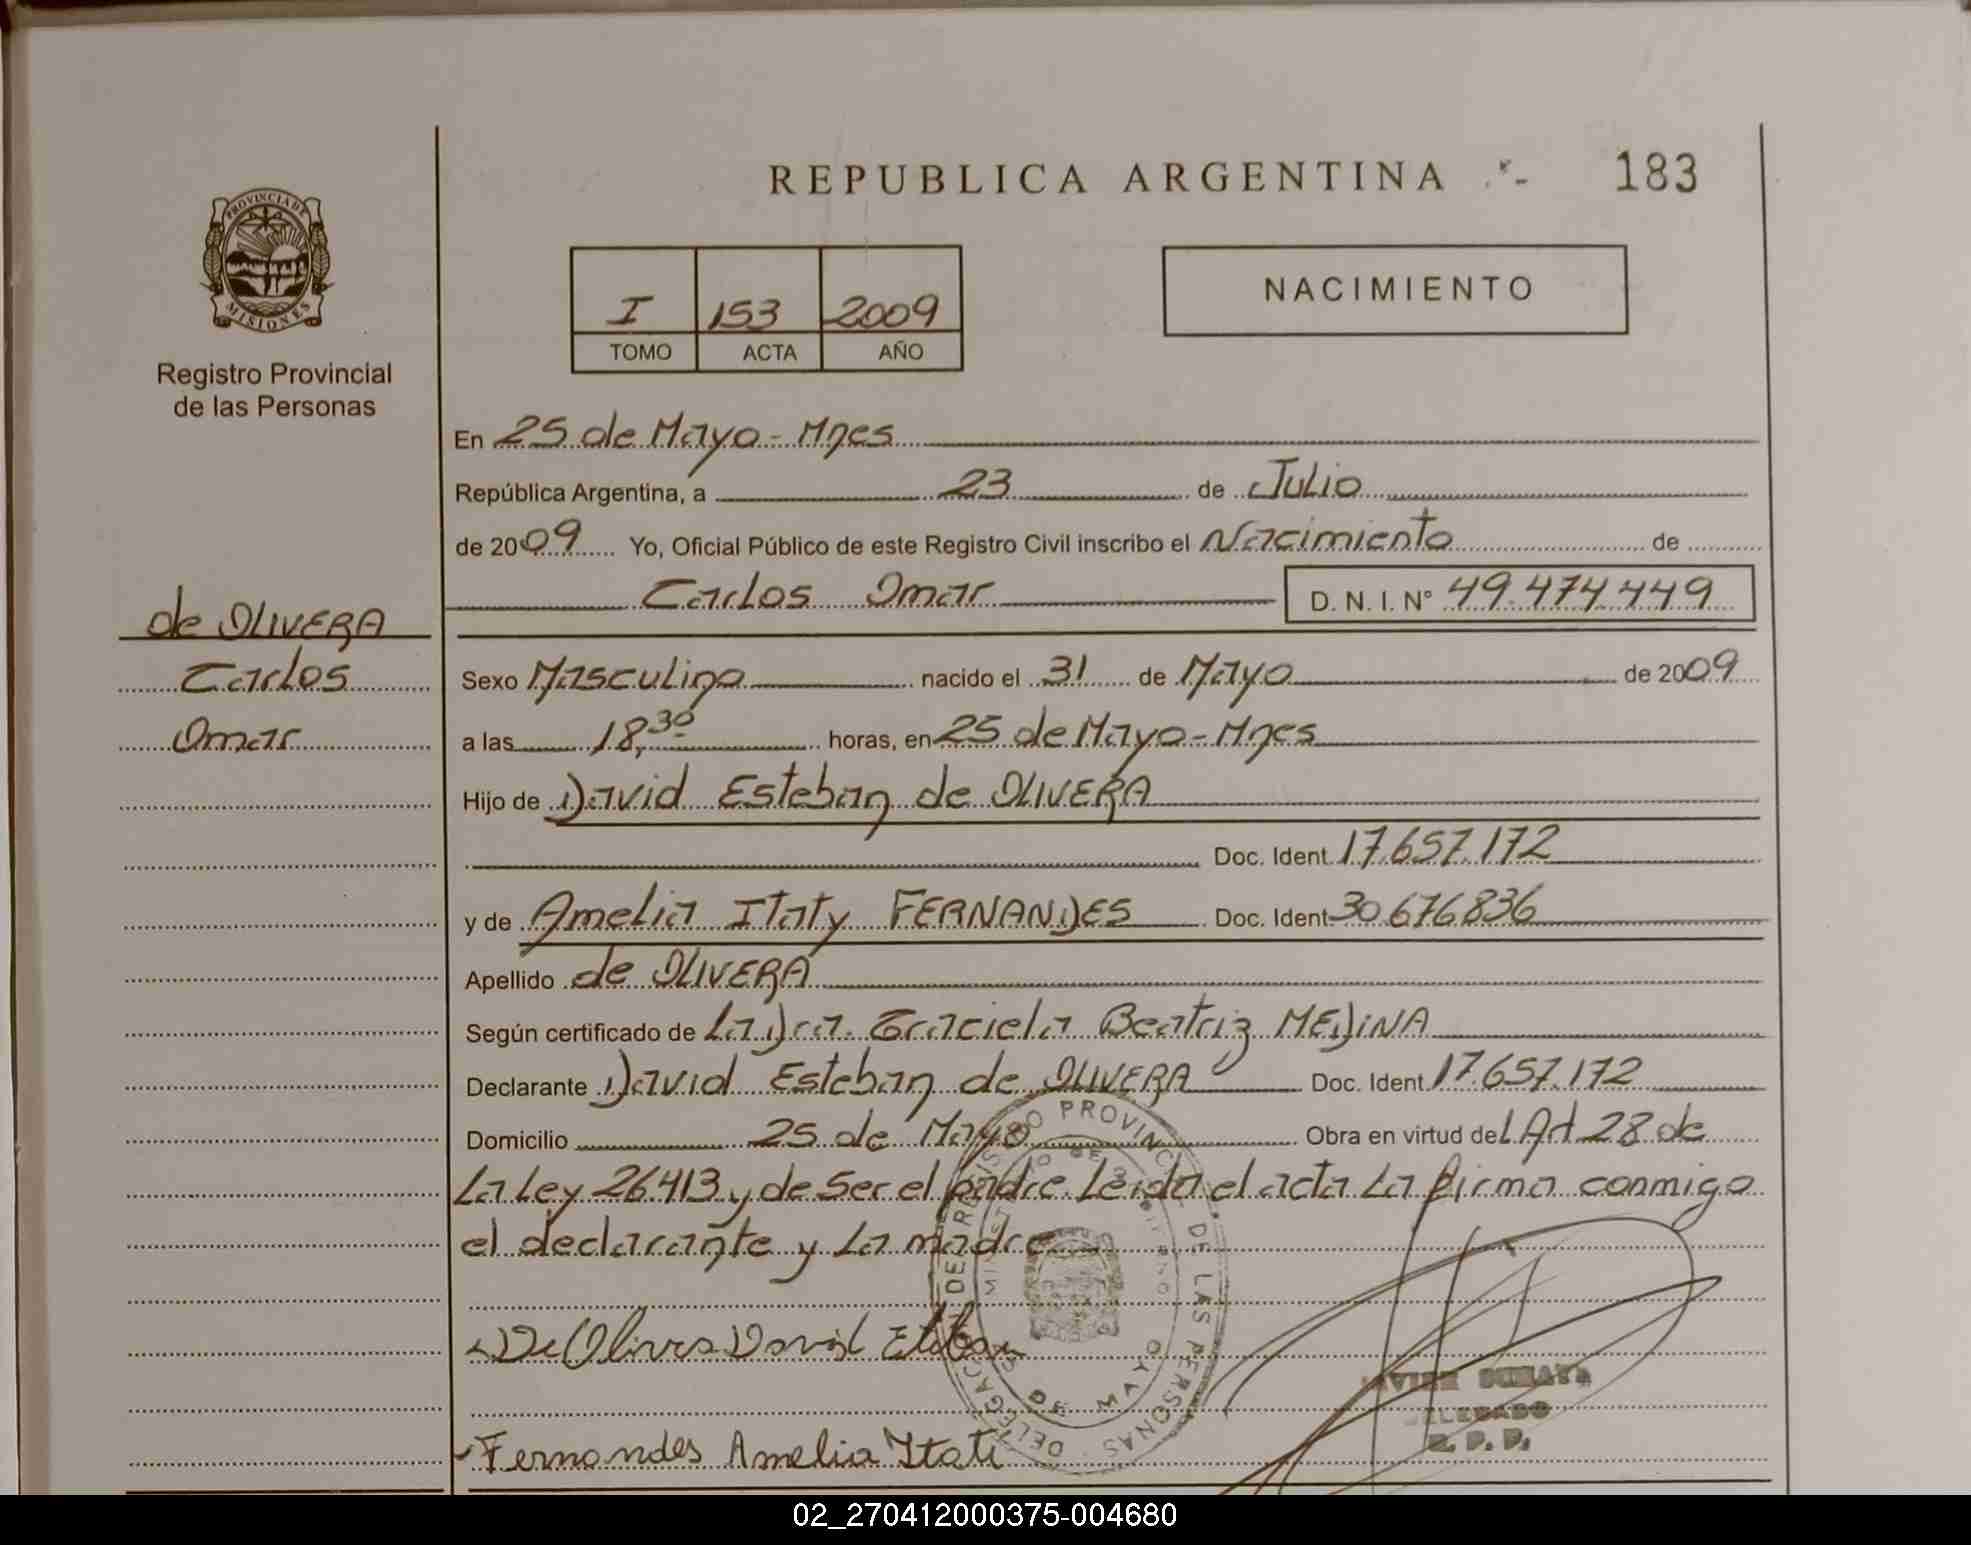 REPUBLICA ARGENTINA
183
PROVINCIA DE
MISIONES
Registro Provincial
de las Personas
I 153 2009
TOMO ACTA AÑO
NACIMIENTO
En 25 de Mayo - Mnes
República Argentina, a 23 de Julio
de 2009 Yo, Oficial Público de este Registro Civil inscribo el Nacimiento de
Carlos Omar D. N. I. N° 49.474.449
de OLIVERA
Carlos
Omar
Sexo Masculino nacido el 31 de Mayo de 2009
a las 18,30 horas, en 25 de Mayo - Mnes
Hijo de David Esteban de OLIVERA
Doc. Ident. 17.657.172
y de Amelia Itaty FERNANDES Doc. Ident. 30.676836
Apellido de OLIVERA
Según certificado de La Dra. Graciela Beatriz MEDINA
Declarante David Esteban de OLIVERA Doc. Ident. 17.657.172
Domicilio 25 de Mayo Obra en virtud del Art 28 de
La Ley 26.413 y de Ser el padre Leida el acta La firma conmigo
el declarante y La madre
De Olivera David Esteban
Fernandes Amelia Itati
DELEGADO
R. P. P.
DEL REGISTRO PROVINCIAL DE LAS PERSONAS
DE MAYO
02_270412000375-004680